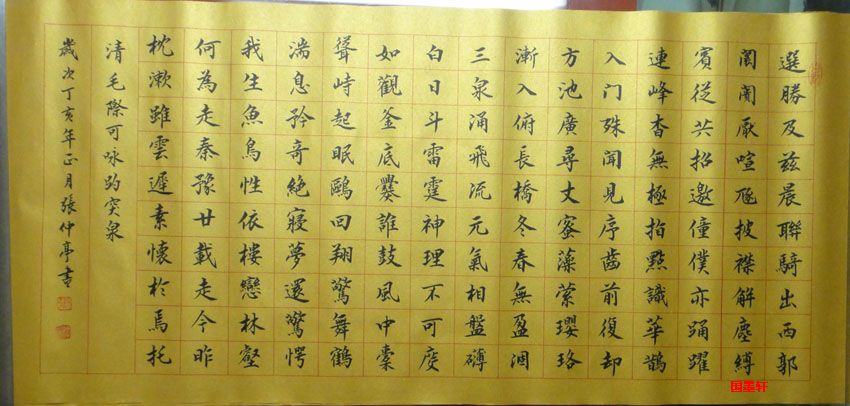 選勝及茲晨聯騎出西郭
闤闠厭喧豗披襟解塵縛
賓從共招邀僮僕亦踊躍
連峰杳無極指點識華鵲
入門殊聞見序齒前復却
方池廣尋丈蜜藻縈瓔珞
漸入俯長橋冬春無盈涸
三泉涌飛流元氣相盤礴
白日斗雷霆神理不可度
如觀釜底爨誰鼓風中橐
聳峙起眠鷗回翔驚舞鶴
湍息矜奇絕寢夢還驚愕
我生魚鳥性依樓戀林壑
何為走秦豫廿載走今昨
枕漱雖雲遲素懷於焉托
清毛際可咏趵突泉
歲次丁亥年正月張仲亭書
国墨轩